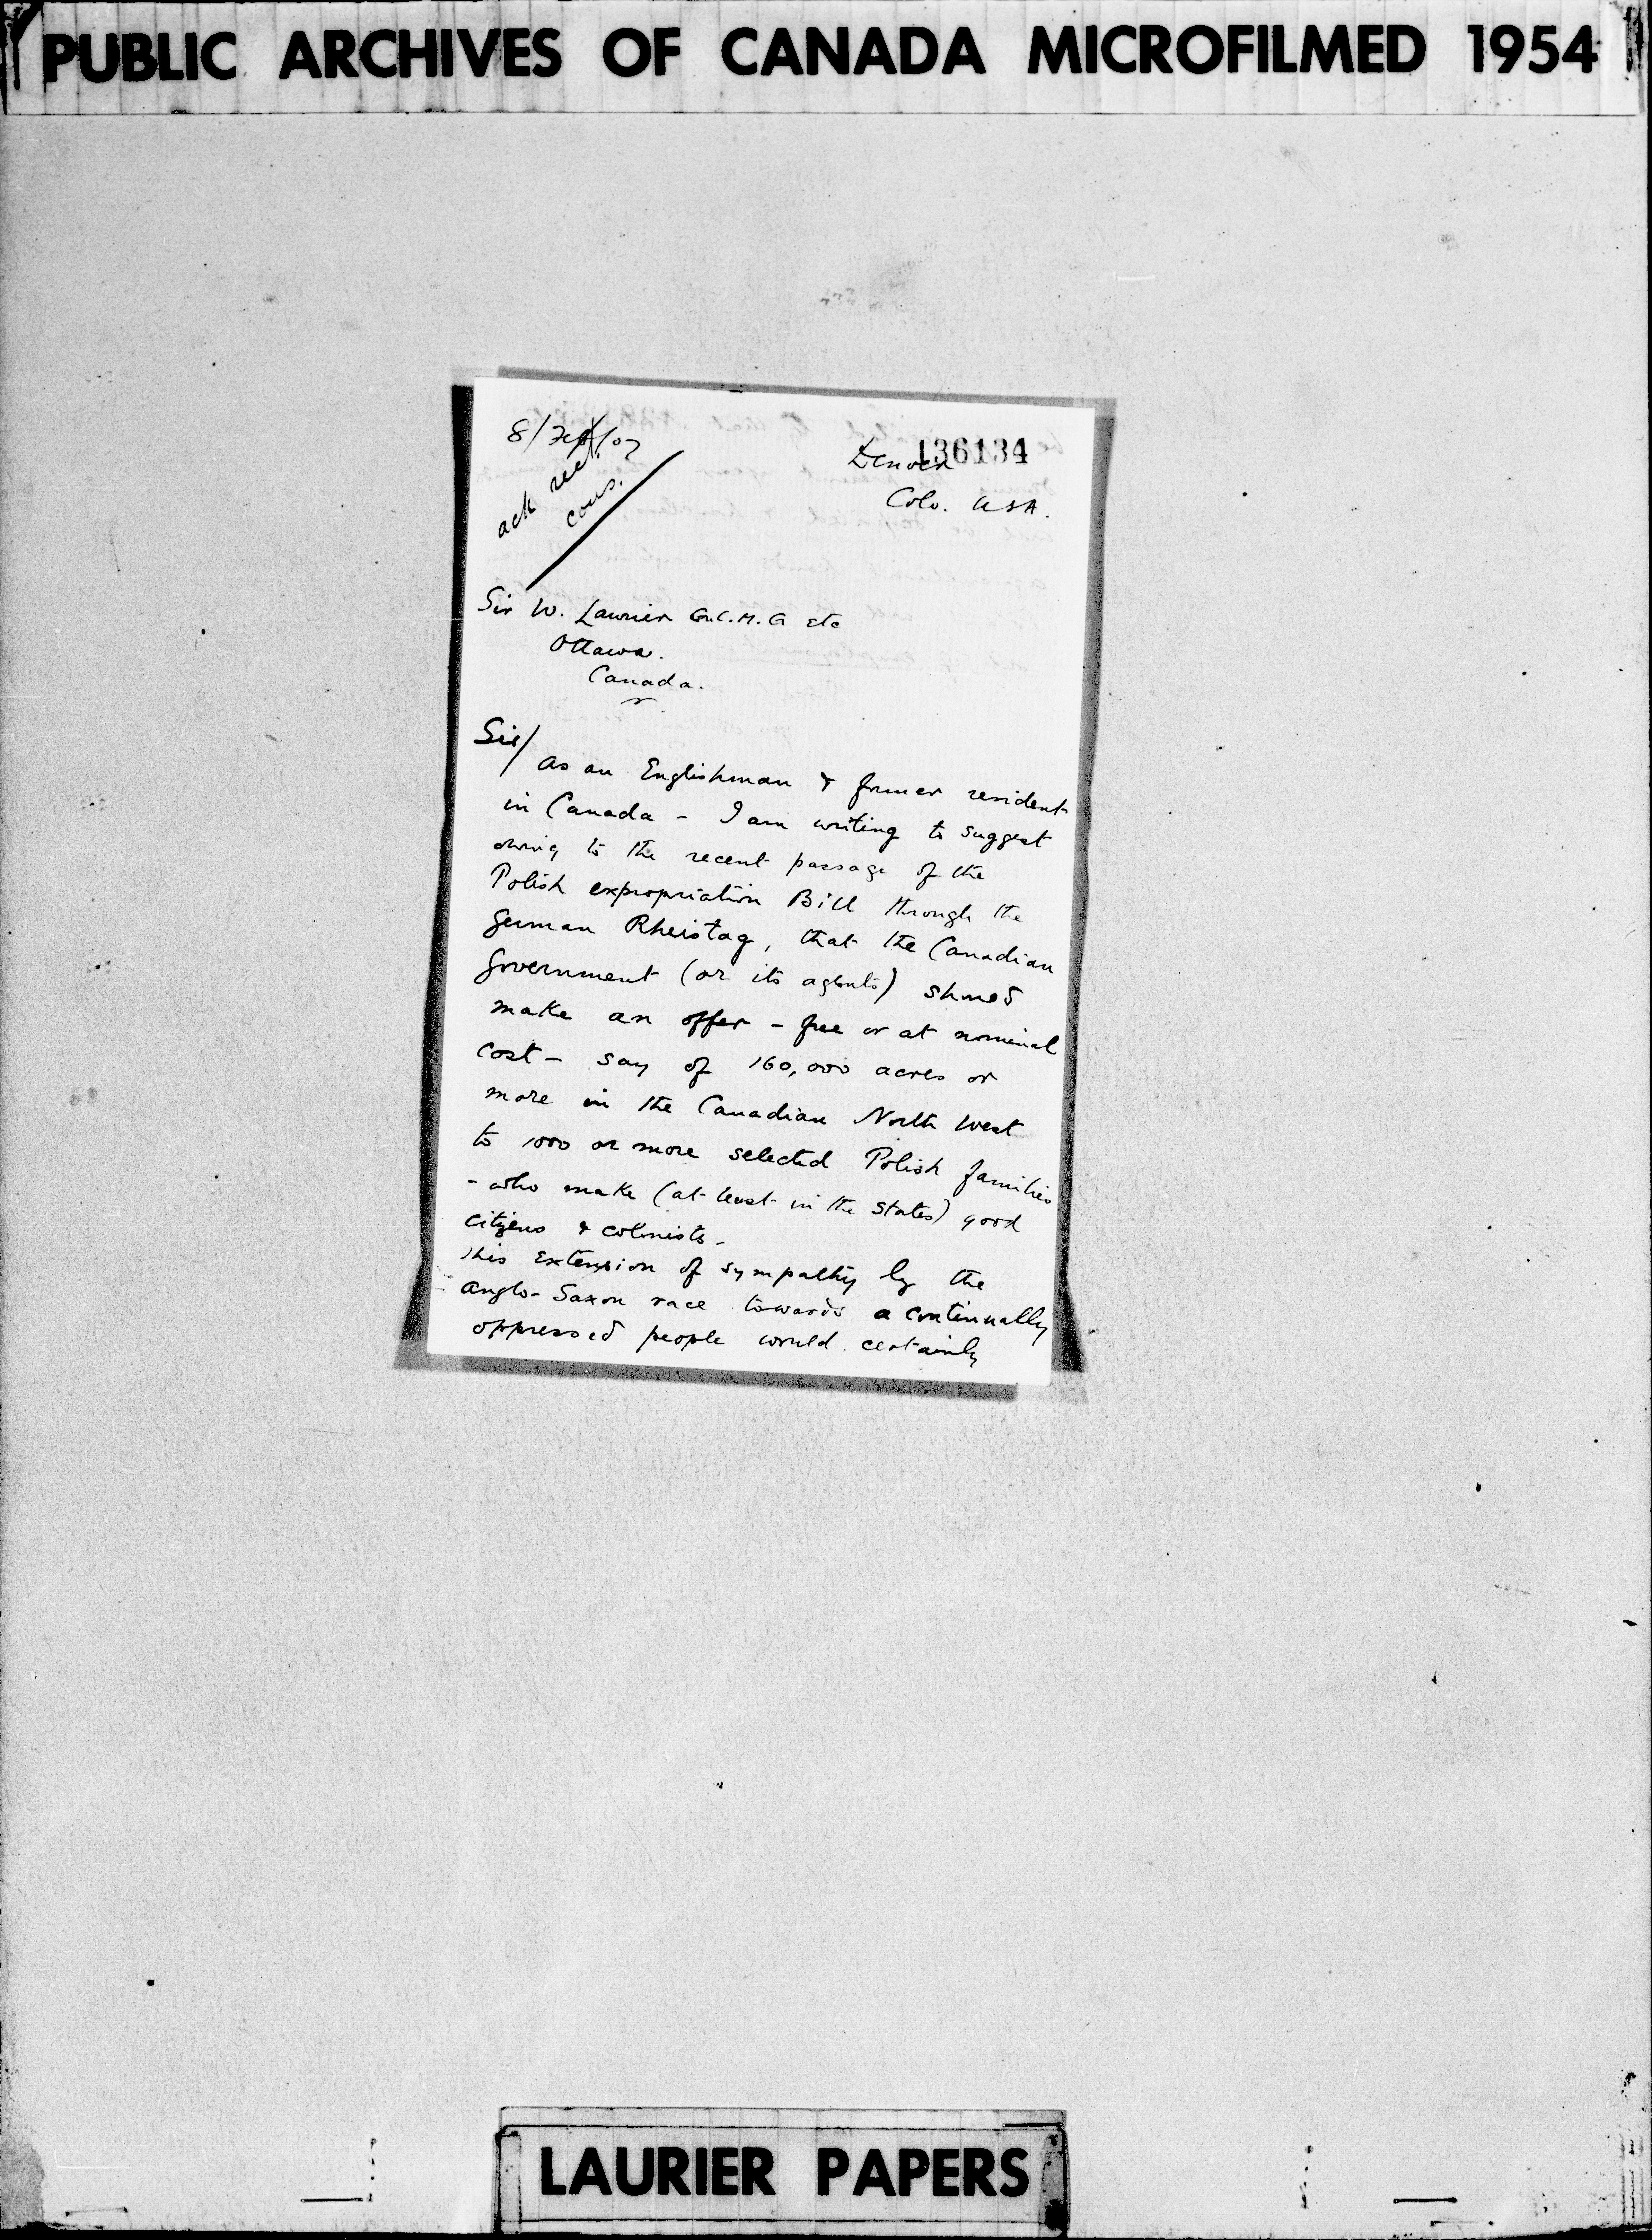 PUBLIC ARCHIVES OF CANADA MICROFILMED 1954
136134
ack
cons.
Denver
Colo. USA.
Sir W. Laurier G.C.M.G etc
Ottawa.
Canada.
Sir/
As an Englishman & former resident
in Canada - I am writing to suggest
owing to the recent passage of the
Polish expropriation Bill through the
German Rheistag, that the Canadian
Government (or its agents) should
make an offer - free or at nominal
cost - say of 160,000 acres or
more in the Canadian North West
to 1000 or more selected Polish families
- who make (at least in the States) good
citizens & colonists -
This extension of sympathy by the
Anglo-Saxon race towards a continually
oppressed people would certainly
LAURIER PAPERS